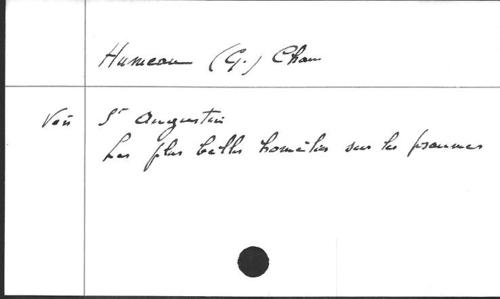 Humeau (G.) Chan
Voir St Augustin
Les plus belles homélies sur les psaumes